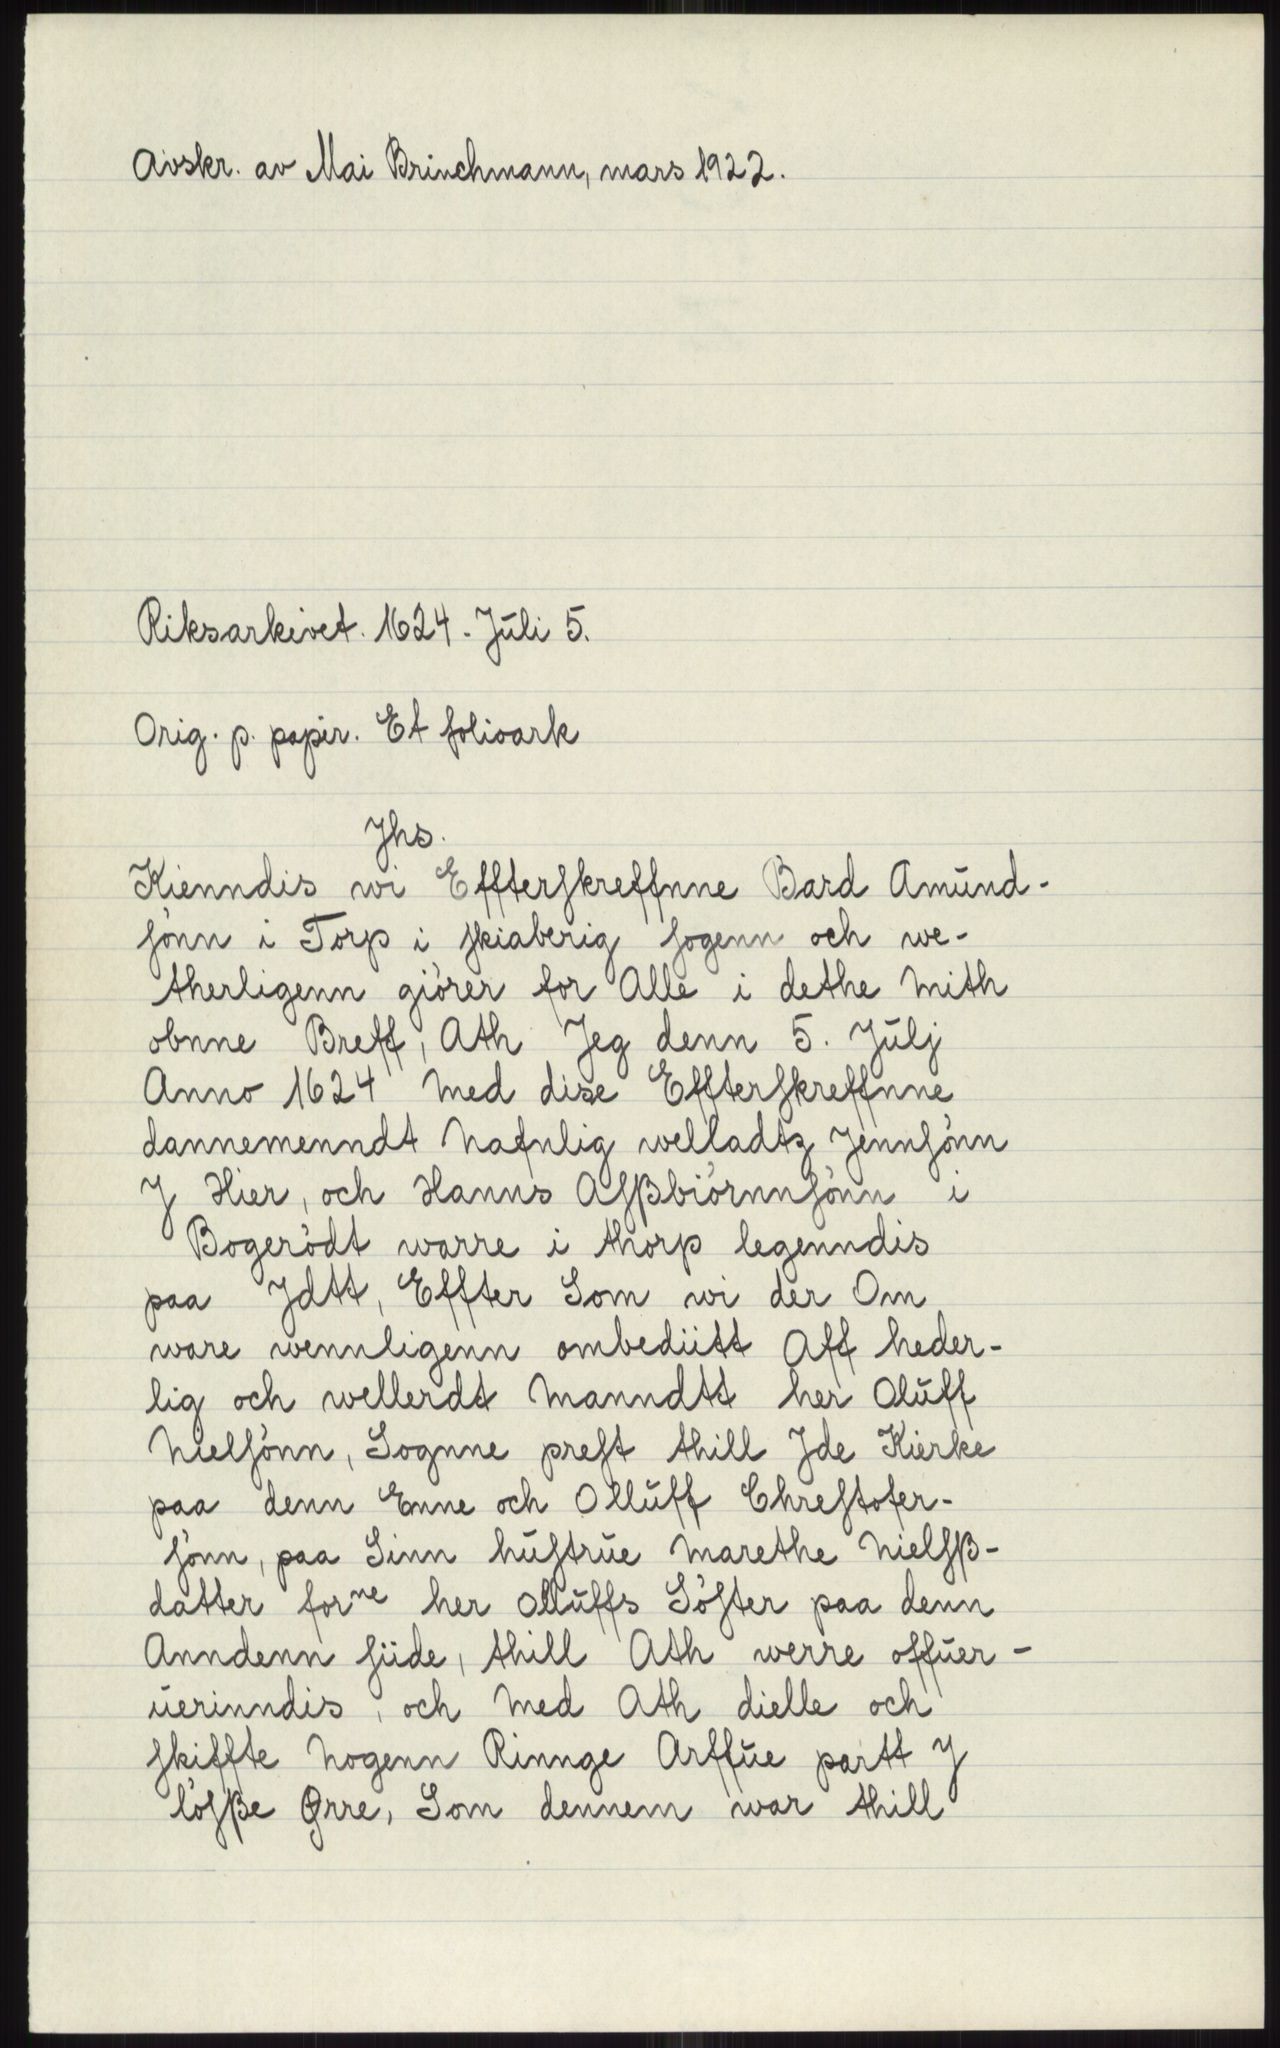 Avskr. av Mai Brinchmann, mars 1922.
Riksarkivet. 1624. Juli 5.
Orig. p. papir. Et folioark
Jhs.
Kienndis wi Effterskreffnne Bard Amund-
sönn i Torp i skiaberig sogenn och we-
therligenn giörer for Alle i dethe Mith
obnne Breff, Ath Jeg denn 5. Julj
Anno 1624 Med dise Effterskreffnne
dannemenndt Nafnlig welladtz Jennsönn
J Hier, och Hanns Asßbiörnnsönn i
Bogerödt warre i thorp legenndis
paa Jdtt, Effter Som wi der Om
ware wennligenn ombediitt Aff heder-
lig och wellerdt Manndtt her Oluff
Nielsönn, Sognne prest thill Jde Kierke
paa denn Enne och Olluff Chrestofer-
sönn, paa Sinn hustrue Marethe Nielsß-
datter forne her Olluffs Söster paa denn
Anndenn siide, thill Ath werre offuer-
uerinndis, och Med Ath dielle och
skiffte Nogenn Rinnge Arffue partt J
lösße Ørre, Som dennem war thill